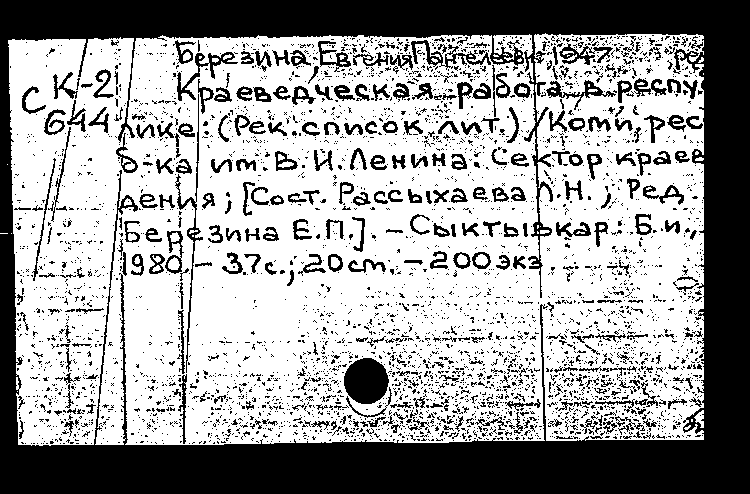 Березина, Евгения Пантелеевна, 1947 ред
С К-2 Краеведческая работа в респуб
644 лике: (Рек. список лит.) / Коми респ
б-ка им. В. И. Ленина. Сектор краев
дения; [Сост. Рассыхаева Л.Н.; Ред.
Березина Е.П.]. - Сыктывкар: Б.и.,
1980. - 37с.; 20 cm. - 200 экз.